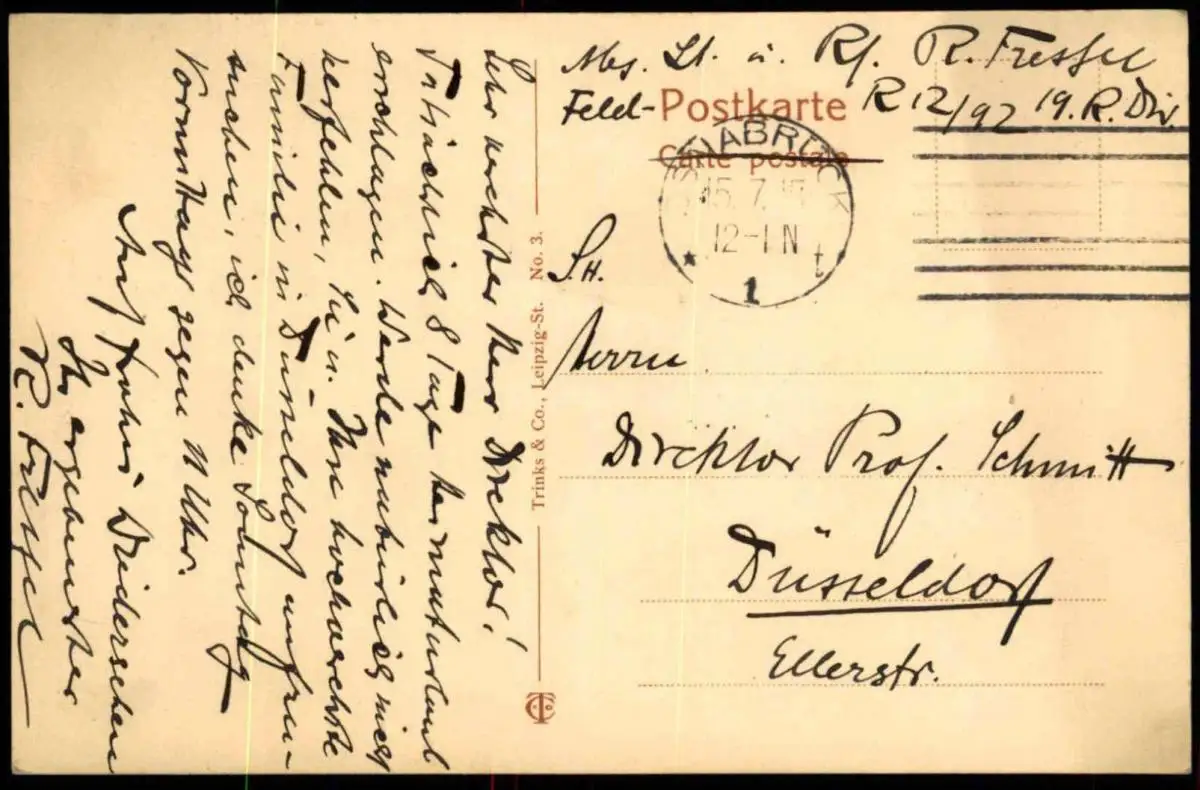 Abs. Lt. u. Kf. R. Fressel
Feld- Postkarte R 12/92 19. R. Div.
Carte postale
OSNABRÜCK
15.7.
12-1 N
* 1
Sr. H.
Herrn
Direktor Prof. Schmitt
Düsseldorf
Ellerstr.
Trinks & Co., Leipzig-St. No. 3.
Sehr verehrter Herr Direktor!
Tatsächlich 8 Tage Heimaturlaub
erschlagen. Werde natürlich nicht
verfehlen, Sie u. Ihre hochverehrte
Familie in Düsseldorf aufzu-
suchen, ich denke Sonntag
Vormittags gegen 11 Uhr.
Auf frohes Wiedersehen
Ihr ergebenster
R. Fressel